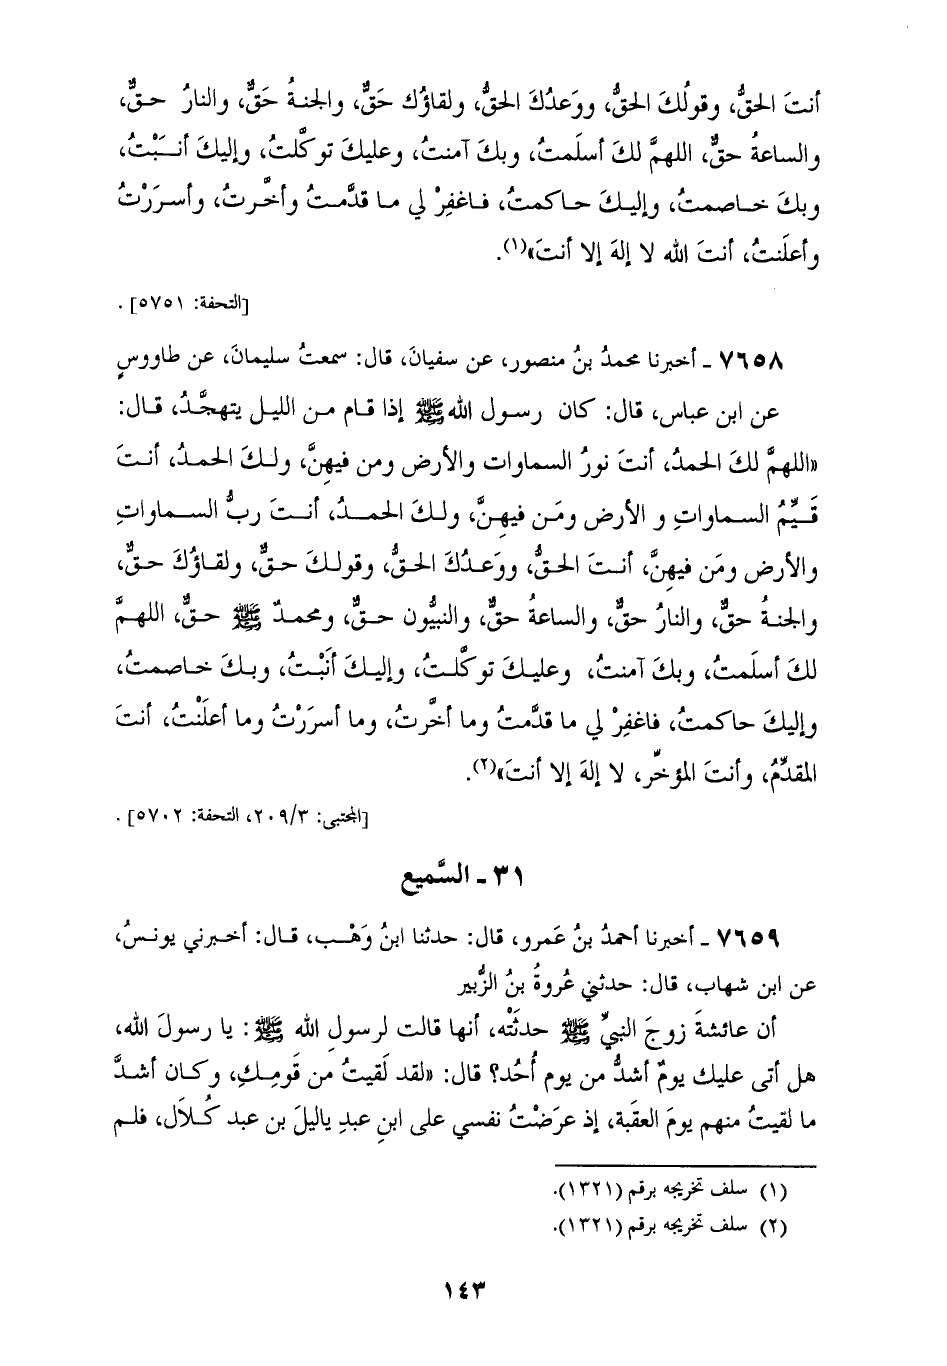 أنتَ الحقُّ، وقولُكَ الحقُّ، ووَعدُكَ الحقُّ، ولقاؤُك حَقٌّ، والجنةُ حَقٌّ، والنارُ حقٌّ،
والساعةُ حقٌّ، اللهمَّ لكَ أسلَمتُ، وبكَ آمنتُ، وعليكَ توكَّلتُ، وإليكَ أنَبْتُ،
وبكَ خاصمتُ، وإليكَ حاكمتُ، فاغفِرْ لي ما قدَّمتُ وأخَّرتُ، وأسرَرْتُ
وأعلَنتُ، أنتَ الله لا إلهَ إلا أنتَ»(١).
[التحفة: ٥٧٥١] .
٧٦٥٨ ـ أخبرنا محمدُ بنُ منصور، عن سفيانَ، قال: سمعتُ سليمانَ، عن طاووسٍ
عن ابن عباس، قال: كان رسول الله ﷺ إذا قام من الليل يتهجَّدُ، قال:
«اللهمَّ لكَ الحمدُ، أنتَ نورُ السماوات والأرض ومن فيهنَّ، ولكَ الحمدُ، أنتَ
قَيِّمُ السماواتِ و الأرض ومَن فيهِنَّ، ولكَ الحمدُ، أنتَ ربُّ السماواتِ
والأرض ومَن فيهِنَّ، أنتَ الحقُّ، ووَعدُكَ الحقُّ، وقولكَ حقٌّ، ولقاؤُكَ حقٌّ،
والجنةُ حقٌّ، والنارُ حقٌّ، والساعةُ حقٌّ، والنبيُّون حقٌّ، ومحمدٌ ﷺ حقٌّ، اللهمَّ
لكَ أسلَمتُ، وبكَ آمنتُ، وعليكَ توكَّلتُ، وإليكَ أنَبْتُ، وبكَ خاصمتُ،
وإليكَ حاكمتُ، فاغفِرْ لي ما قدَّمتُ وما أخَّرتُ، وما أسرَرْتُ وما أعلَنْتُ، أنتَ
المقدِّمُ، وأنتَ المؤخِّر، لا إلهَ إلا أنتَ»(٢).
[المجتبى: ٢٠٩/٣، التحفة: ٥٧٠٢] .
٣١ ـ السَّميع
٧٦٥٩ ـ أخبرنا أحمدُ بنُ عَمرو، قال: حدثنا ابنُ وَهْب، قال: أخبرني يونسُ،
عن ابن شهاب، قال: حدثني عُروةُ بنُ الزُّبير
أن عائشةَ زوجَ النبيِّ ﷺ حدثَتْه، أنها قالت لرسولِ الله ﷺ: يا رسولَ الله،
هل أتى عليك يومٌ أشدُّ من يوم أُحُد؟ قال: «لقد لَقيتُ من قَومِكِ، وكان أشدَّ
ما لقيتُ منهم يومَ العقَبة، إذ عرَضْتُ نفسي على ابنِ عبدِ ياليلَ بن عبد كُلاَل، فلم
(١) سلف تخريجه برقم (١٣٢١).
(٢) سلف تخريجه برقم (١٣٢١).
١٤٣